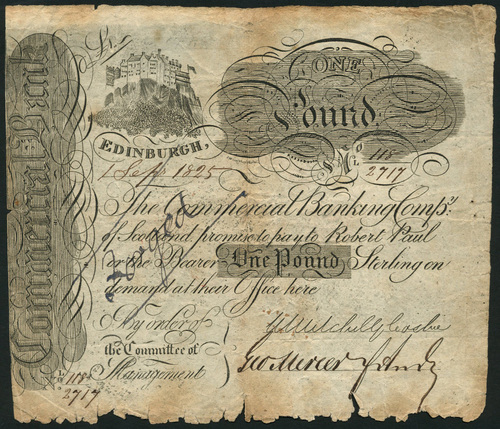 Commercial Bank
£1
ONE
Pound
EDINBURGH,
No. 118/2717
1 Sept 1825
The Commercial Banking Compy.
of Scotland promise to pay to Robert Paul
or the Bearer One Pound Sterling on
demand at their Office here
Forged
By order of
the Committee of
Management
Geo Mercer
No 118/2717